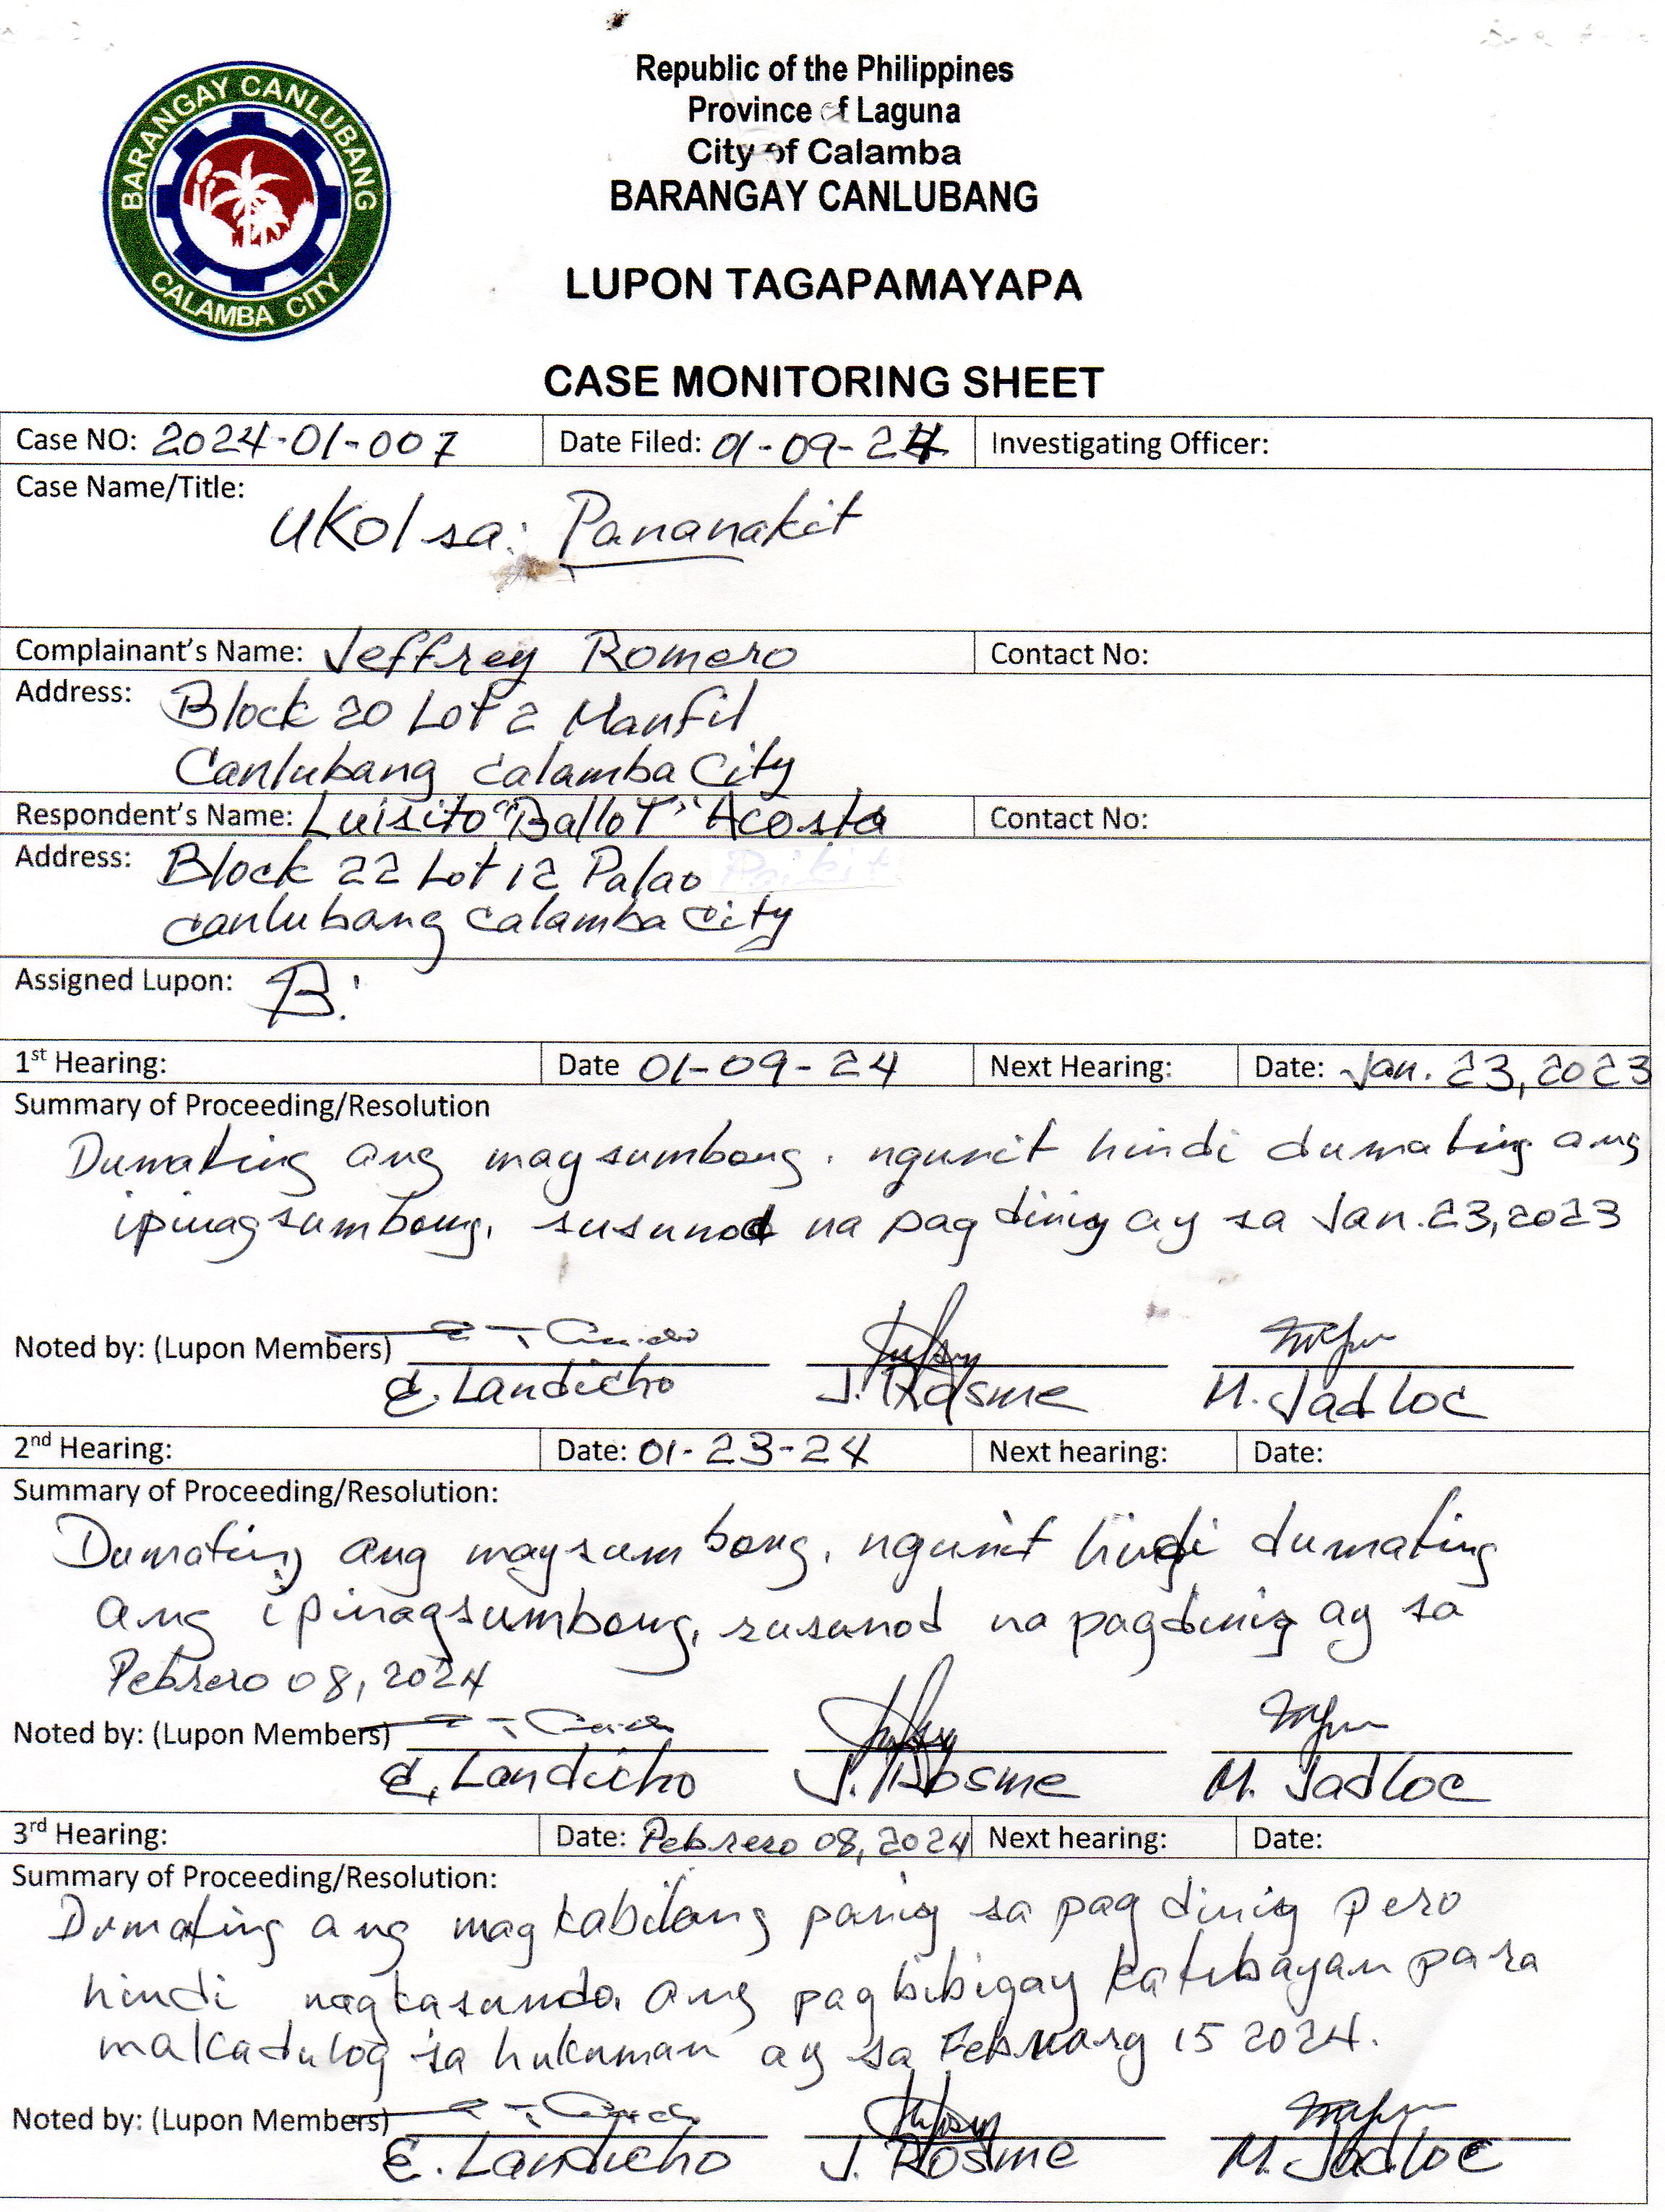 BARANGAY CANLUBANG
CALAMBA CITY
Republic of the Philippines
Province of Laguna
City of Calamba
BARANGAY CANLUBANG
LUPON TAGAPAMAYAPA
CASE MONITORING SHEET
Case NO: 2024-01-007 Date Filed: 01-09-24 Investigating Officer:
Case Name/Title:
UKol sa: Pananakit
Complainant's Name: Jeffrey Romero Contact No:
Address: Block 20 Lot 2 Manfil
Canlubang Calamba City
Respondent's Name: Luisito "Ballot" Acosta Contact No:
Address: Block 22 Lot 12 Palao
Canlubang Calamba City
Assigned Lupon: B.
1st Hearing: Date 01-09-24 Next Hearing: Date: Jan. 23, 2023
Summary of Proceeding/Resolution
Dumating ang maysumbong. ngunit hindi dumating ang
ipinagsumbong, susunod na pagdinig ay sa Jan. 23, 2023
Noted by: (Lupon Members)
E. Landicho J. Rosme M. Jadloc
2nd Hearing: Date: 01-23-24 Next hearing: Date:
Summary of Proceeding/Resolution:
Dumating ang maysumbong, ngunit hindi dumating
ang ipinagsumbong, susunod na pagdinig ay sa
Pebrero 08, 2024
Noted by: (Lupon Members)
E. Landicho J. Rosme M. Jadloc
3rd Hearing: Date: Pebrero 08, 2024 Next hearing: Date:
Summary of Proceeding/Resolution:
Dumating ang magkabilang panig sa pagdinig pero
hindi nagkasundo. ang pagbibigay katibayan para
makadulog sa hukuman ay sa February 15 2024.
Noted by: (Lupon Members)
E. Landicho J. Rosme M. Jadloc